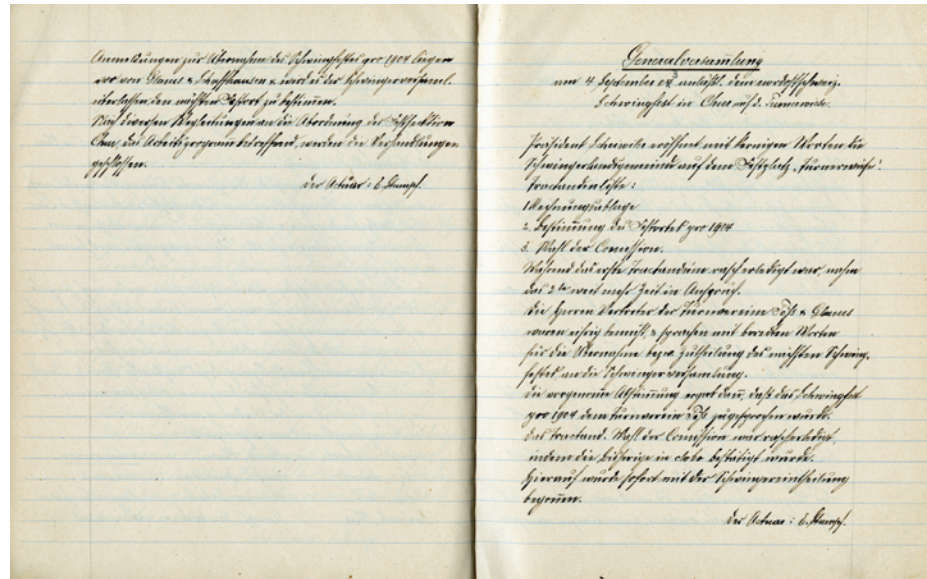 Anmeldungen zur Übernahme des Schwingfestes pro 1904 liegen
vor von Glarus & Schaffhausen & wird es der Schwingerversamml.
überlassen den nächsten Festort zu bestimmen.
Nach diversen Begleitungen an die Abordnung der Festsektion
Chur, das Arbeitsprogramm betreffend, werden die Verhandlungen
geschlossen.
Der Actuar: E. Stumpf.
Generalversamlung
am 4 September anläßl. dem nordostschweiz.
Schwingfest in Chur auf d. Turnerwiese.
Präsident eröffnet mit kernigen Worten die
Schwingerlandsgemeinde auf dem Festplatz „Turnerwiese".
Tractandenliste:
1. Rechnungsablage
2. Bestimmung des Festortes pro 1904
3. Wahl der Comission.
Während das erste Tractandum rasch erledigt war, nahm
das 2te weit mehr Zeit in Anspruch.
Die Herren Vertreter der Turnvereine Töß & Glarus
waren eifrig bemüht, & sprachen mit beredten Worten
für die Übernahme bezw. Zutheilung des nächsten Schwing-
festes an die Schwingerversamlung.
Die vorgenomene Abstimmung ergab dann, daß das Schwingfest
pro 1904 dem Turnverein Töß zugesprochen wurde.
Das Tractand. Wahl der Comission war rasch erledigt,
indem die bisherige in globo bestätigt wurde.
Hierauf wurde sofort mit der Schwingereintheilung
begonnen.
Der Actuar: E. Stumpf.